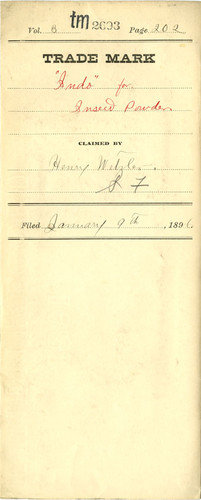 Vol. 8 tm 2693 Page 202
TRADE MARK
"Indo" for
Insect Powder
CLAIMED BY
Henry Wetzler
S F
Filed January 9th, 1896